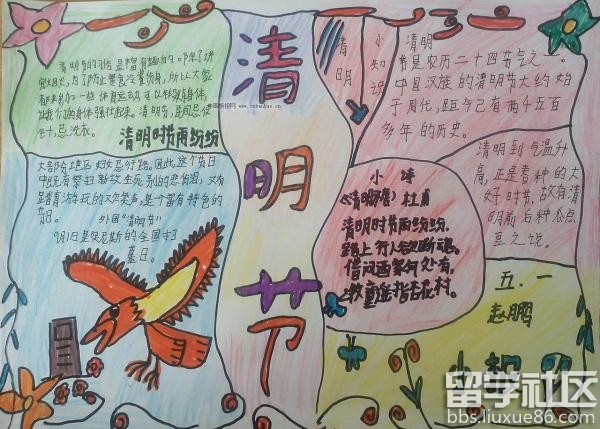 清明节的习俗是丰富有趣的。除了讲
究禁火，为了防止寒食冷餐伤身，所以大家
都来参加一些体育运动，可以锻炼身体，
清明节，民间忌使
针，忌洗衣。
清明时节雨纷纷
大部分地区妇女忌行路。因此，这个节日
中既有祭扫新坟生死别离的悲伤泪，又有
踏青游玩的欢笑声，是个富有特色的
节日。
外国“清明节”
9月1日是突尼斯的全国扫
墓日。
清明节
小知识
清明
清明
農历二十四节气之一。
中国汉族的清明节大约始
于周代，距今已有两千五百
多年的历史。
清明到气温升
高，正是春种的大
好时节，故有清
明前后种瓜点
豆之说。
小诗
《清明》唐 杜甫
清明时节雨纷纷，
路上行人欲断魂。
借问酒家何处有，
牧童遥指杏花村。
五.一
赵鹏
小报
留学社区
bbs.liuxue86.com